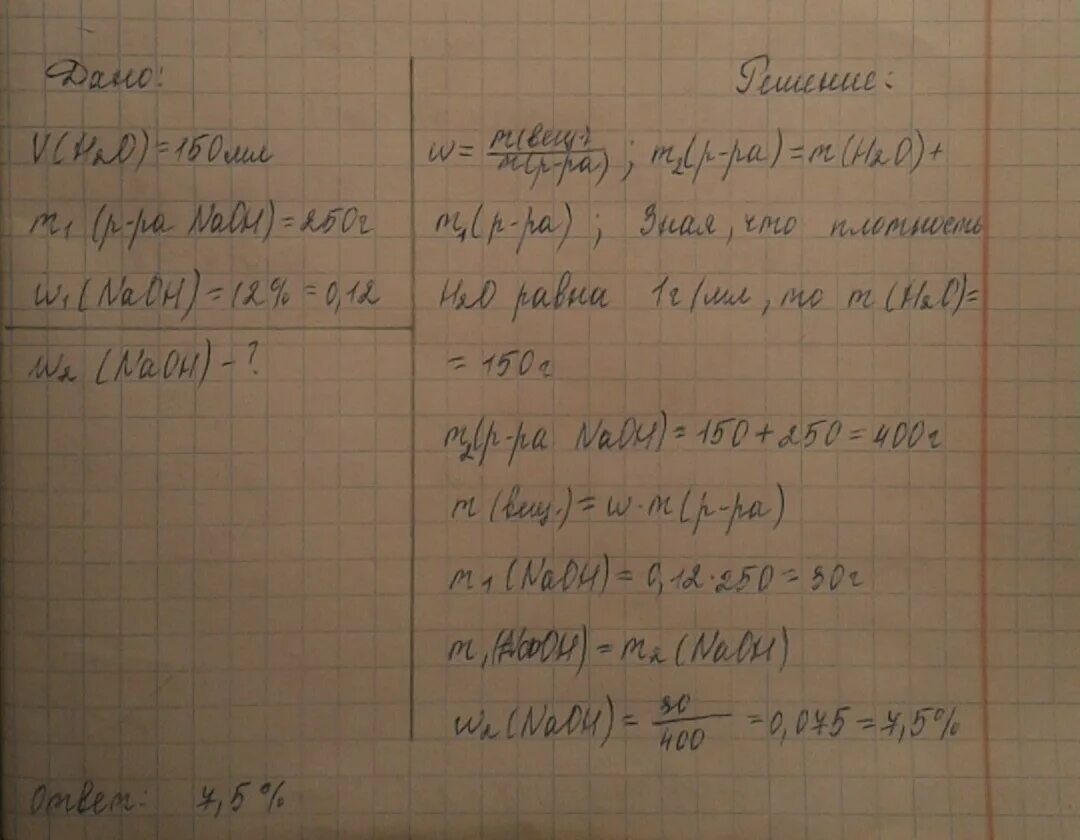 Дано:
V(H₂O)=150мл
m₁ (р-ра NaOH)=250г
w₁(NaOH)=12%=0,12
w₂ (NaOH)-?
Решение:
w= m(вещ.)/m(р-ра) ; m₂(р-ра)=m(H₂O)+
m₁(р-ра) ; Зная, что плотность
H₂O равна 1г/мл, то m(H₂O)=
=150г
m₂(р-ра NaOH)=150+250=400г
m(вещ.)=w·m(р-ра)
m₁(NaOH)=0,12·250=30г
m₁(NaOH)=m₂(NaOH)
w₂(NaOH)= 30/400 =0,075=7,5%
Ответ: 7,5%